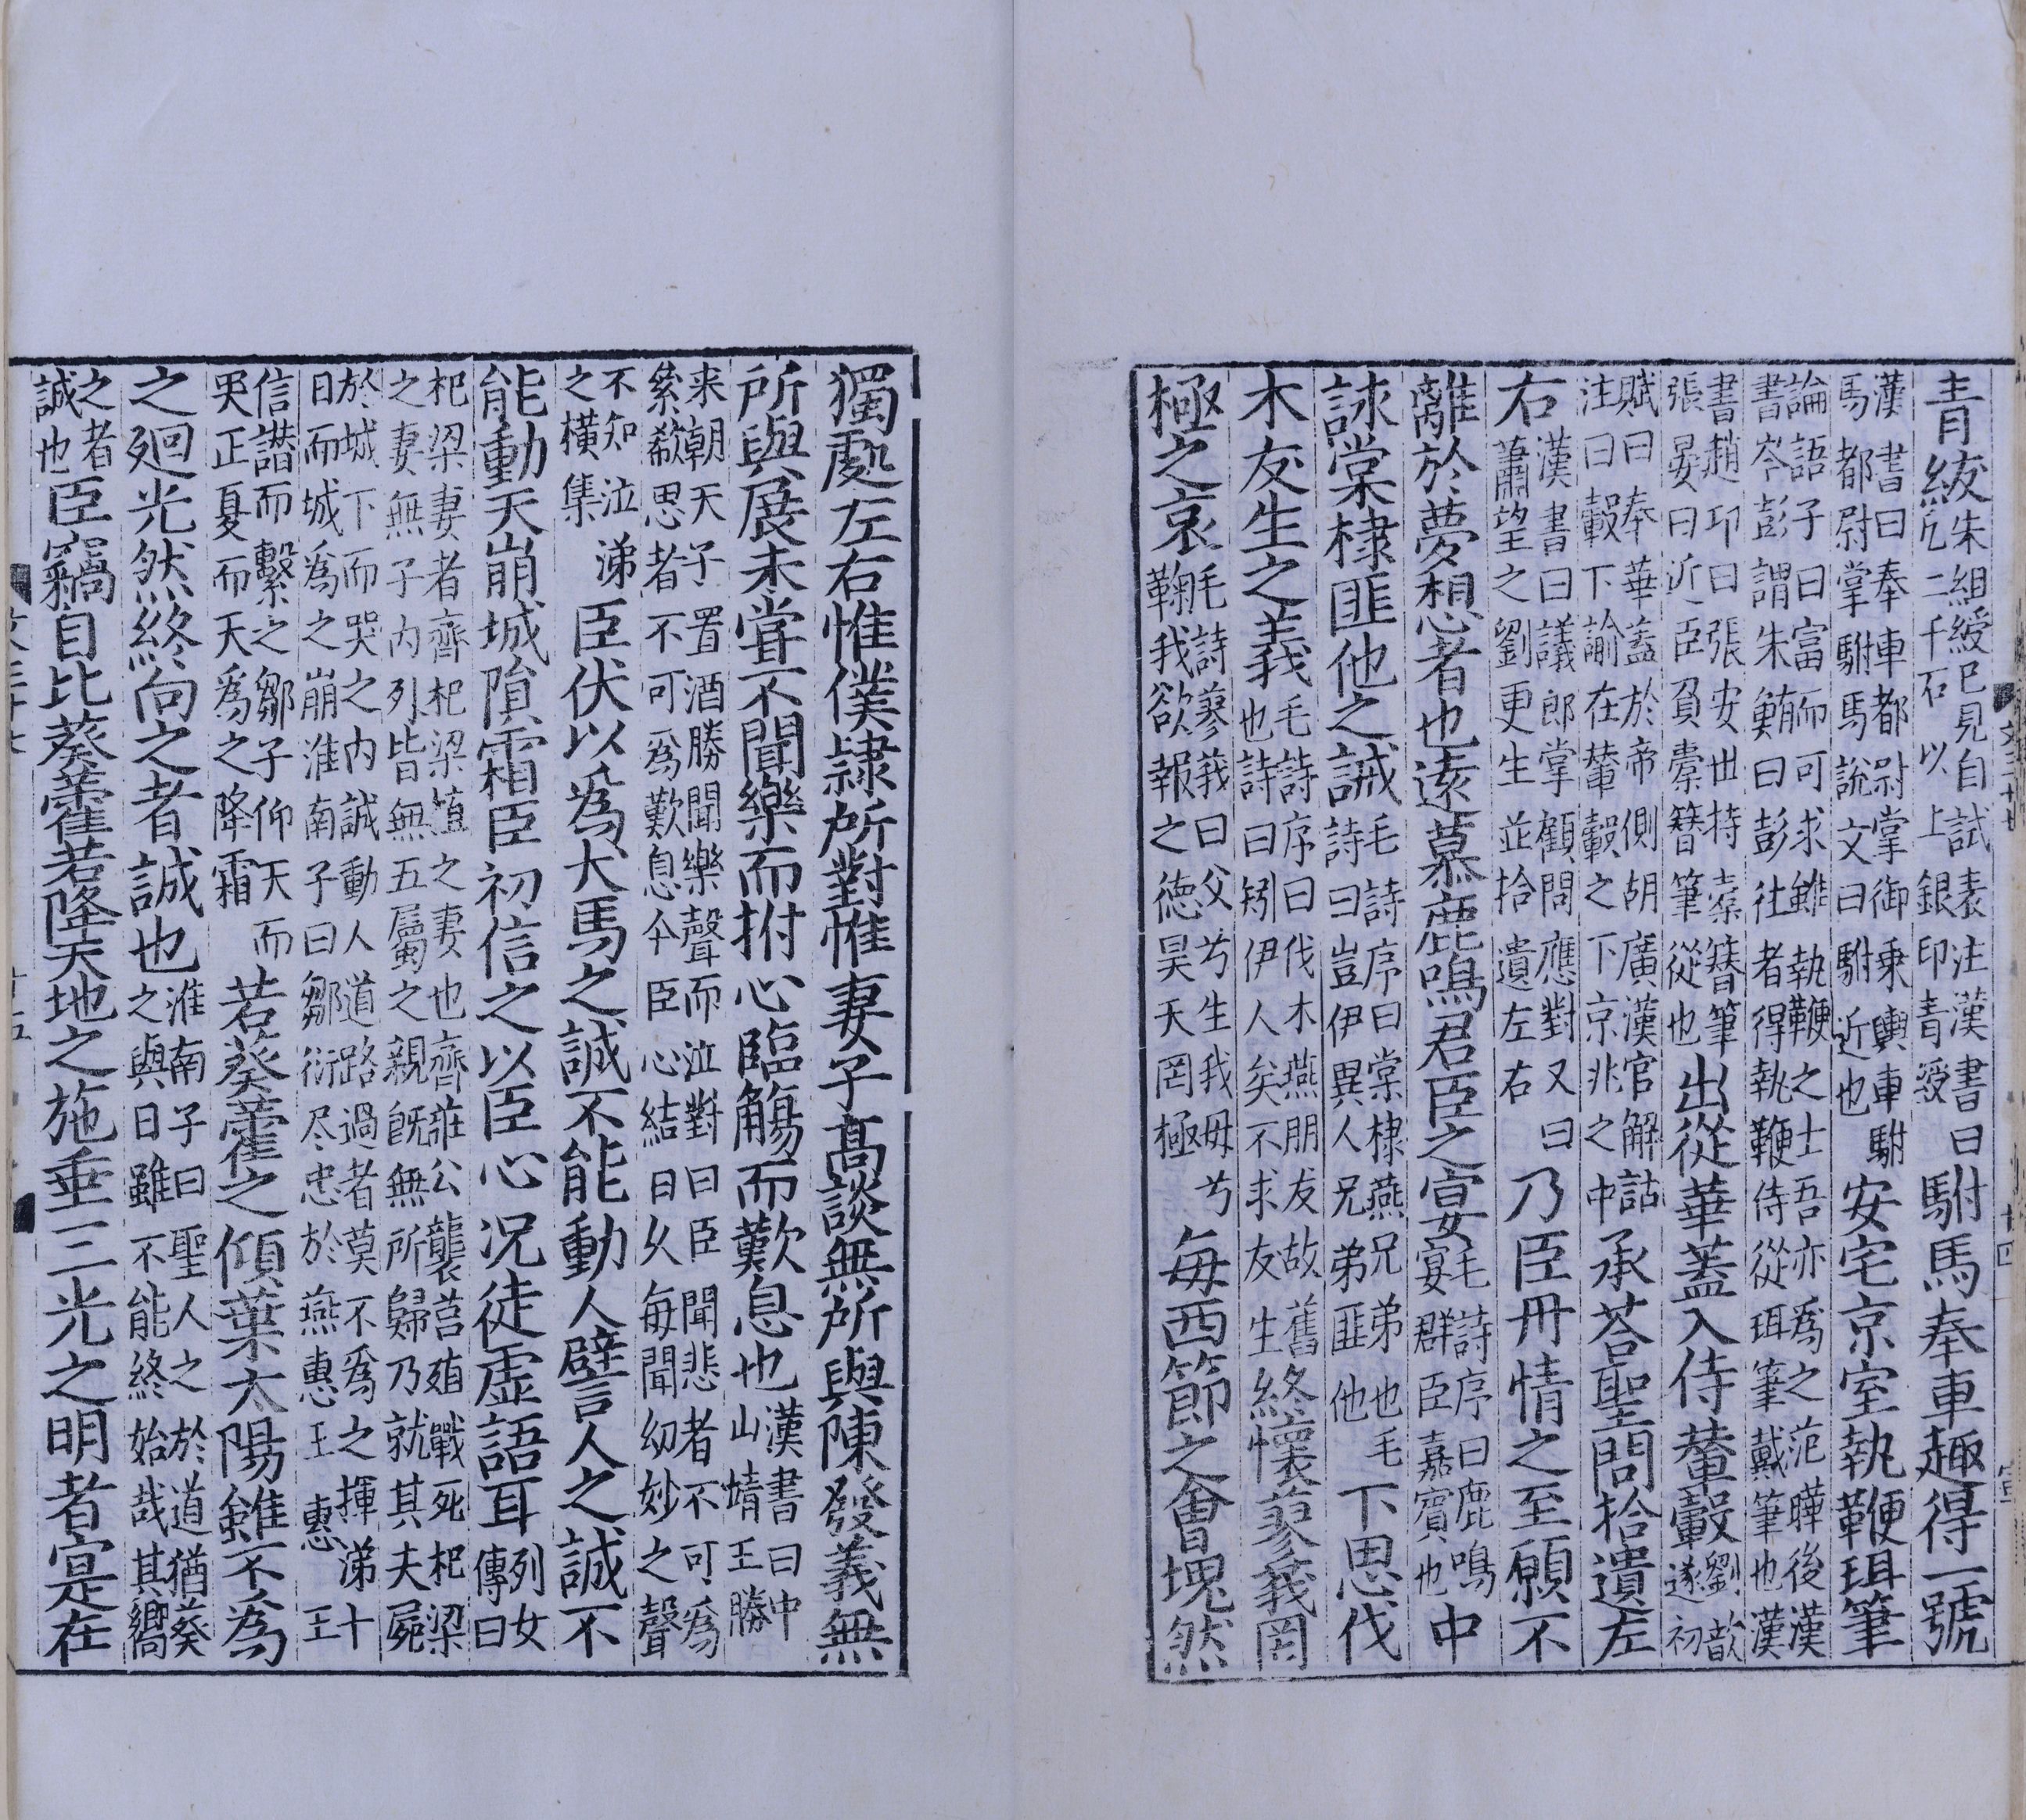 青紱朱組綬已見自試表注漢書曰
凡二千石以上銀印青綬駙馬奉車趣得一號
漢書曰奉車都尉掌御乘輿車駙
馬都尉掌駙馬說文曰駙近也安宅京室執鞭珥筆
論語子曰富而可求雖執鞭之士吾亦爲之范曄後漢
書岑彭謂朱鮪曰彭往者得執鞭侍從珥筆戴筆也漢
書趙卬曰張安世持橐簪筆
張晏曰近臣負橐簪筆從也出從華蓋入侍輦轂劉歆
遂初
賦曰奉華蓋於帝側胡廣漢官解詁
注曰轂下諭在輦轂之下京兆之中承荅聖問拾遺左
右漢書曰議郎掌顧問應對又曰
蕭望之劉更生並拾遺左右乃臣丹情之至願不
離於夢想者也遠慕鹿鳴君臣之宴毛詩序曰鹿鳴
宴群臣嘉賓也中
詠棠棣匪他之誡毛詩序曰棠棣燕兄弟也毛
詩曰豈伊異人兄弟匪他下思伐
木友生之義毛詩序曰伐木燕朋友故舊
也詩曰矧伊人矣不求友生終懷蓼莪罔
極之哀毛詩蓼莪曰父兮生我毋兮
鞠我欲報之德昊天罔極每四節之會塊然
獨處左右惟僕隸所對惟妻子高談無所與陳發義無
所與展未甞不聞樂而拊心臨觴而歎息也漢書曰中
山靖王勝
来朝天子置酒勝聞樂聲而泣對曰臣聞悲者不可爲
絫欷思者不可爲歎息今臣心結日久每聞幼妙之聲
不知泣涕
之橫集臣伏以爲犬馬之誠不能動人譬人之誠不
能動天崩城隕霜臣初信之以臣心況徒虛語耳列女
傳曰
杞梁妻者齊杞梁殖之妻也齊莊公襲莒殖戰死杞梁
之妻無子内列皆無五屬之親旣無所歸乃就其夫屍
於城下而哭之内誠動人道路過者莫不爲之揮涕十
日而城爲之崩淮南子曰鄒衍尽忠於燕惠王惠王
信譖而繫之鄒子仰天而
哭正夏而天爲之降霜若葵藿之傾葉太陽雖不爲
之迴光然終向之者誠也淮南子曰聖人之於道猶葵
之與日雖不能終始哉其鄉
之者
誠也臣竊自比葵藿若降天地之施垂三光之明者寔在